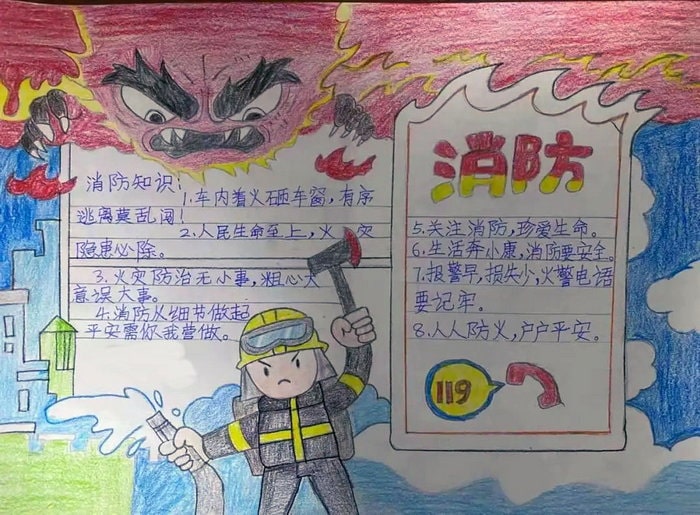 消防知识!
1.车内着火砸车窗,有序
逃离莫乱闯!
2.人民生命至上,火灾
隐患必除。
3.火灾防治无小事,粗心大
意误大事。
4.消防从细节做起
平安需你我营做。
消防
5.关注消防,珍爱生命。
6.生活奔小康,消防要安全。
7.报警早,损失少,火警电话
要记牢。
8.人人防火,户户平安。
119